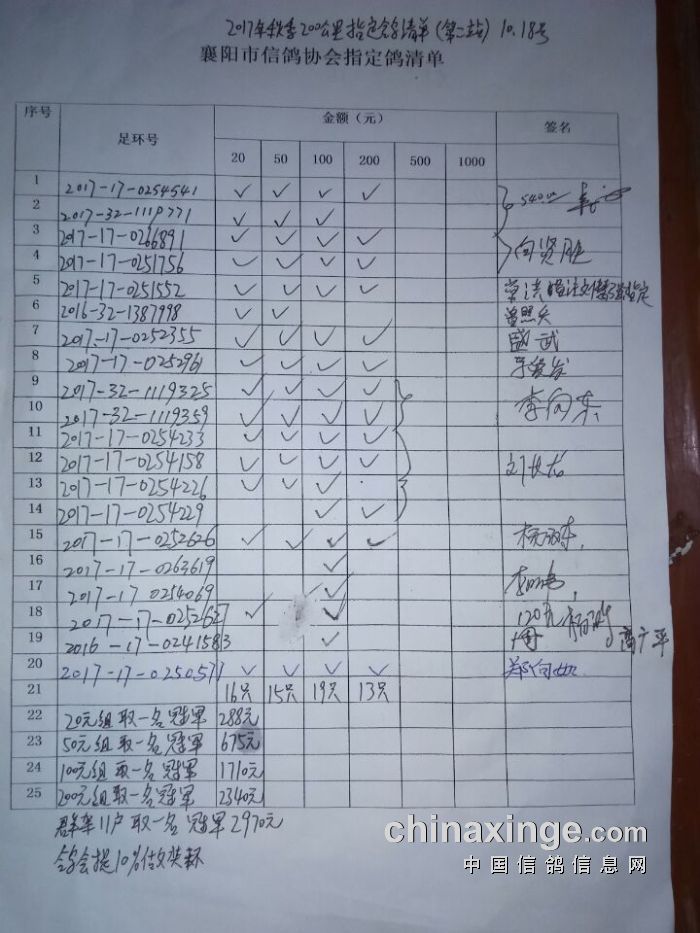 2017年秋季200公里指定鸽清单(第二站) 10.18号
襄阳市信鸽协会指定鸽清单
序号 足环号 金额（元） 签名
20 50 100 200 500 1000
1 2017-17-0254541 ✓ ✓ ✓ ✓
2 2017-32-1119771 ✓ ✓ ✓
3 2017-17-0266891 ✓ ✓ ✓ ✓
4 2017-17-0251756 ✓ ✓ ✓ ✓ 向贤胜
5 2017-17-0251552 ✓ ✓ ✓ ✓
6 2016-32-1387998 ✓ ✓
7 2017-17-0252355 ✓ ✓ ✓ ✓ 武
8 2017-17-0252961 ✓ ✓ ✓ ✓
9 2017-32-1119325 ✓ ✓ ✓ ✓
10 2017-32-1119359 ✓ ✓ ✓ ✓ 李向东
11 2017-17-0254233 ✓ ✓ ✓ ✓
12 2017-17-0254158 ✓ ✓ ✓ ✓ 刘长龙
13 2017-17-0254226 ✓ ✓ ✓
14 2017-17-0254229 ✓ ✓
15 2017-17-0252626 ✓ ✓ ✓ ✓
16 2017-17-0263619 ✓
17 2017-17-0254069 ✓
18 2017-17-0252627 ✓ ✓ 120元
19 2016-17-0241583 ✓ 高广平
20 2017-17-0250577 ✓ ✓ ✓ ✓ 郑
21 16只 15只 19只 13只
22 20元组取一名冠军 288元
23 50元组取一名冠军 675元
24 100元组取一名冠军 1710元
25 200元组取一名冠军 2340元
11户取一名冠军2970元
鸽会提10%做奖杯
chinaxinge.com
中国信鸽信息网